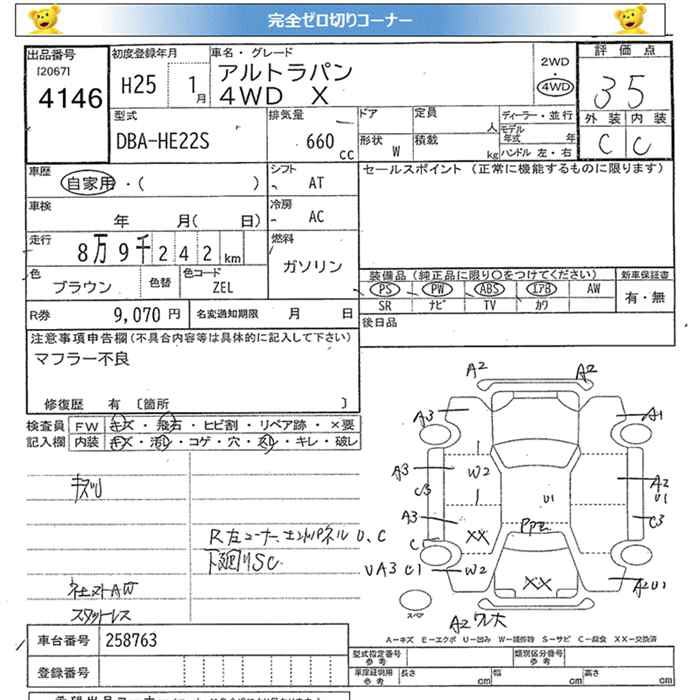 完全ゼロ切りコーナー
出品番号
[2067]
4146
初度登録年月
H25
1月
車名・グレード
アルトラパン
4WD X
2WD
・
4WD
評価点
35
外装 内装
C C
型式
DBA-HE22S
排気量
660 cc
ドア
形状
W
定員
人
積載
kg
ディーラー・並行
モデル年式 年
ハンドル 左・右
車歴
自家用・( )
シフト
AT
セールスポイント (正常に機能するものに限ります)
車検
年 月( 日)
冷房
AC
走行
8万9千242km
燃料
ガソリン
色
ブラウン
色替
色コード
ZEL
装備品 (純正品に限り〇をつけてください)
新車保証書
PS PW ABS エアB AW
SR ナビ TV カワ
有・無
R券
9,070 円
名変通知期限
月 日
後日品
注意事項申告欄 (不具合内容等は具体的に記入して下さい)
マフラー不良
修復歴 有 [箇所 ]
検査員
記入欄
FW キズ・飛石・ヒビ割・リペア跡・×要
内装 キズ・汚レ・コゲ・穴・スレ・キレ・破レ
A2 A2
A3 A1
A3 W2 A2
C3 U1 U1
A3 C3
XX
C
W2
XX A2U1
スペア
A2 ワレ大
R左コーナー、エンドパネル U、C
下廻りSC
スタットレス
A-キズ E-エクボ U-凹み W-補修跡 S-サビ C-腐食 XX-交換済
車台番号
258763
登録番号
型式指定番号
参考
類別区分番号
参考
車庫証明用
参考
長さ cm
幅 cm
高さ cm